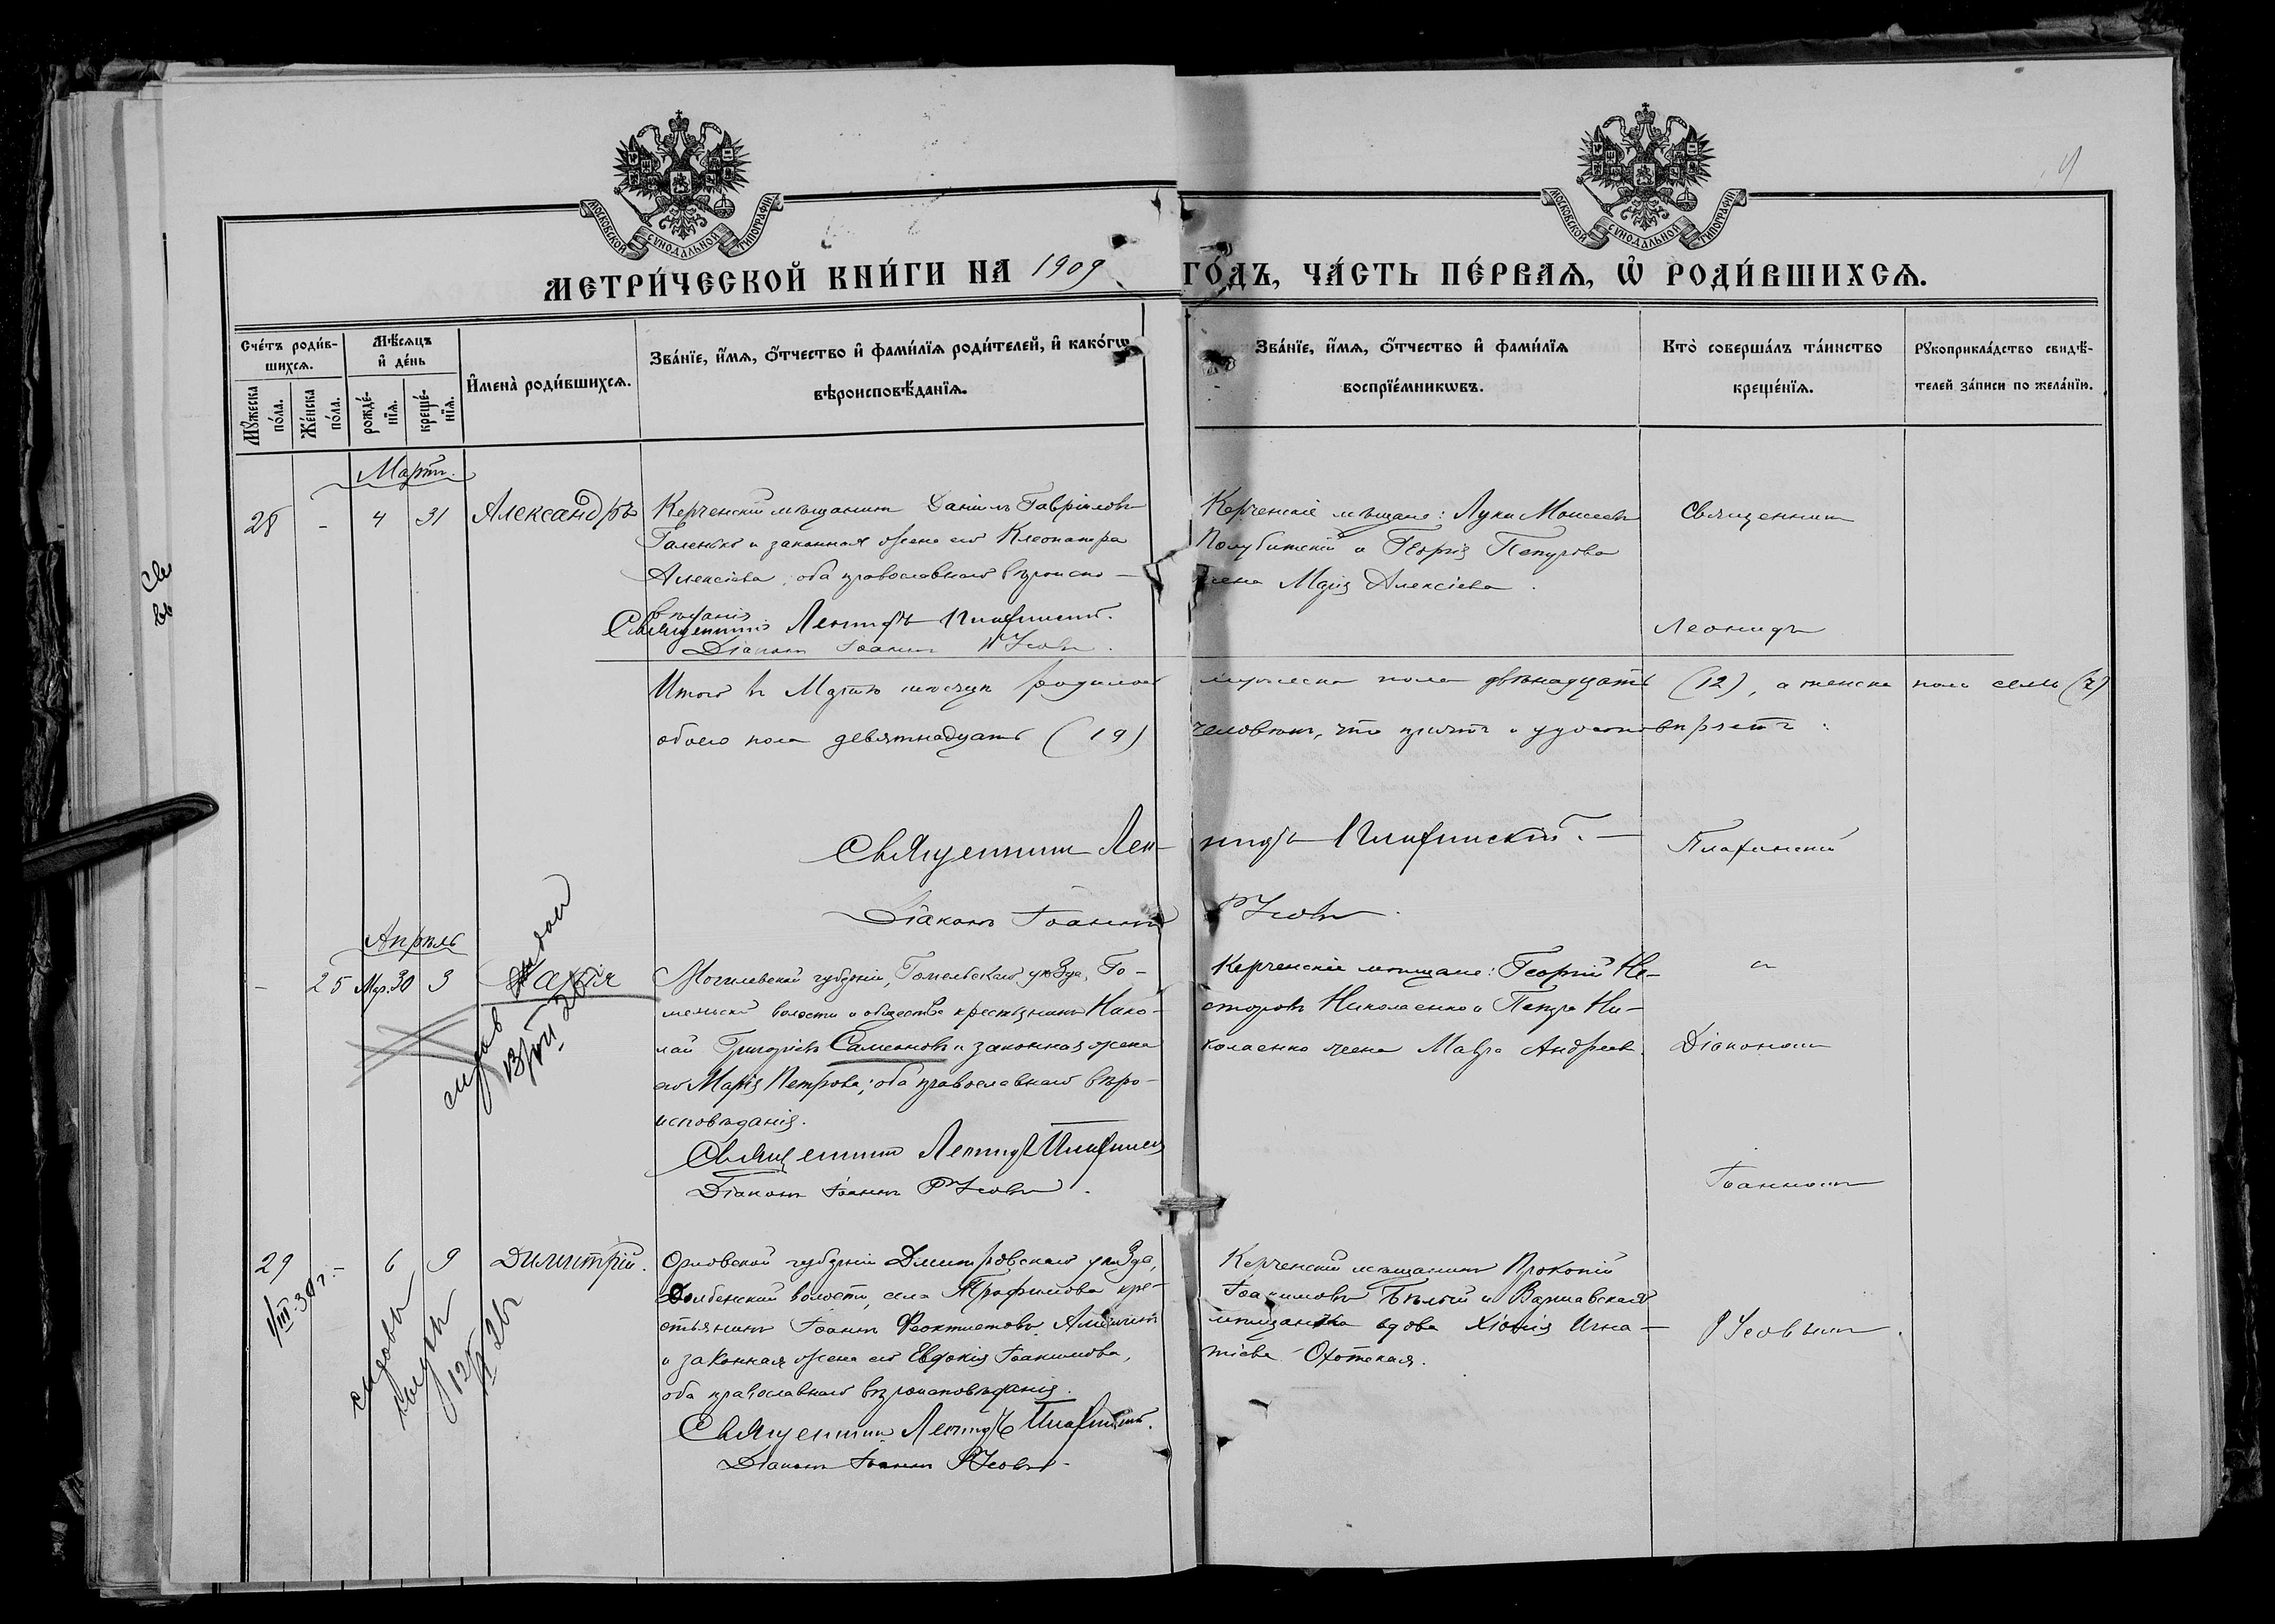 МОСКОВСКОЙ СѴНОДАЛЬНОЙ ТИПОГРАФІИ
МОСКОВСКОЙ СѴНОДАЛЬНОЙ ТИПОГРАФІИ
МЕТРИ́ЧЕСКОЙ КНИ́ГИ НА 1909 ГО́ДЪ, ЧА́СТЬ ПЕ́РВАѦ, Ѡ҆ РОДИ́ВШИХСѦ.
Сче́тъ роди́в-
шихсѧ.
Мꙋ́жеска по́ла.
Же́нска по́ла.
Мѣ́сѧцъ
и҆ де́нь
рожде́-
нїѧ.
креще́-
нїѧ.
И҆мена̀ роди́вшихсѧ.
Зва́нїе, и҆́мѧ, ѻ҆́тчество и҆ фами́лїѧ роди́телей, и҆ како́гѡ
вѣроисповѣ́данїѧ.
Зва́нїе, и҆́мѧ, ѻ҆́тчество и҆ фами́лїѧ
воспрїе́мникѡвъ.
Кто̀ соверша́лъ та́инство
креще́нїѧ.
Рꙋкоприкла́дство свидѣ́-
телей за́писи по жела́нїю.
Мартъ.
28 - 4 31 Александръ
Керченскій мѣщанинъ Даніилъ Гавріиловъ
Галенко и законная жена его Клеопатра
Алексіева, оба православнаго вѣроиспо-
вѣданія
Священникъ Леонидъ
Діаконъ Іоаннъ Усовъ.
Керченскіе мѣщане: Лука Моисеевъ
и Георгія
жена Марія Алексіева.
Священникъ
Леонидъ
Итого въ Мартѣ мѣсяцѣ родилось мужеска пола двѣнадцать (12), а женска пола семь (7)
обоего пола девятнадцать (19) человѣкъ, что причтъ и удостовѣряетъ.
Священникъ Леонидъ
Діаконъ Іоаннъ Усовъ.
Апрѣль
- 25 Мар. 30 3
Могилевской губерніи, Гомельскаго уѣзда, Го-
мельской волости и общества крестьянинъ Нико-
лай Григоріевъ Самсоновъ и законная жена
его Марія Петрова; оба православнаго вѣро-
исповѣданія.
Священникъ Леонидъ
Діаконъ Іоаннъ Усовъ.
Керченскіе мѣщане: Георгій Не-
сторовъ Николаенко и Петра Ни-
колаенко жена Мавра Андреев.
и
Діакономъ
Іоанномъ
29 - 6 9 Димитрій.
Орловской губерніи Дмитровскаго уѣзда,
волости, села Трофимова кре-
стьянинъ Іоаннъ Феоктистовъ
и законная жена его Евдокія Іоакимова,
оба православнаго вѣроисповѣданія.
Священникъ Леонидъ
Діаконъ Іоаннъ Усовъ.
Керченскій мѣщанинъ Прокопій
Іоакимовъ Бѣлый и Варшавская
мѣщанка вдова Хіонія Игна-
тіева Охотская.
Усовымъ.